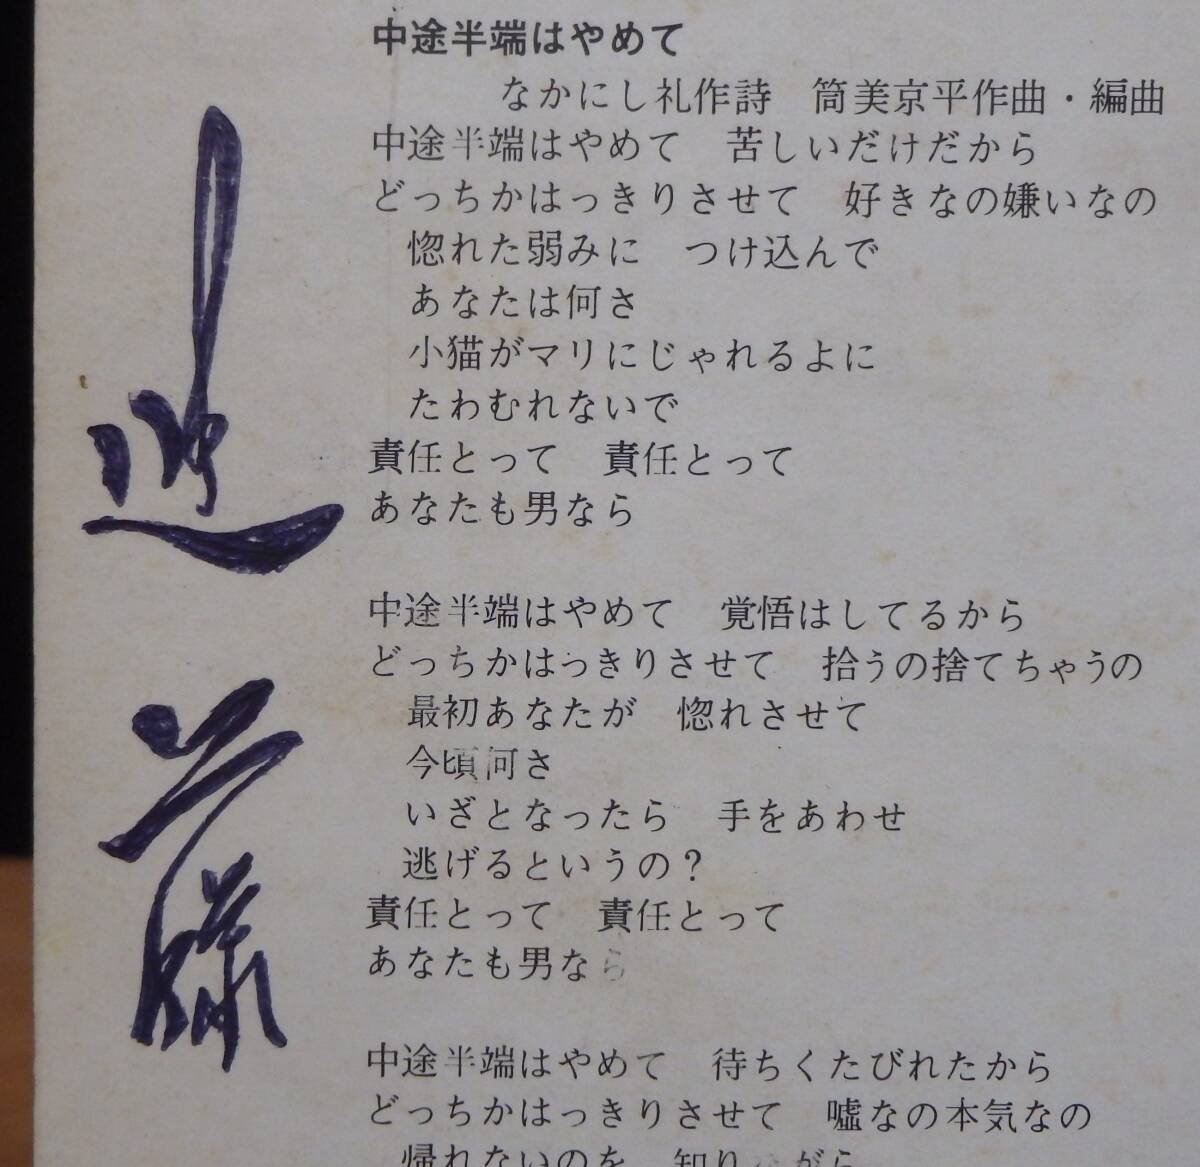 中途半端はやめて
なかにし礼作詩　筒美京平作曲・編曲
中途半端はやめて　苦しいだけだから
どっちかはっきりさせて　好きなの嫌いなの
惚れた弱みに　つけ込んで
あなたは何さ
小猫がマリにじゃれるよに
たわむれないで
責任とって　責任とって
あなたも男なら
中途半端はやめて　覚悟はしてるから
どっちかはっきりさせて　拾うの捨てちゃうの
最初あなたが　惚れさせて
今頃何さ
いざとなったら　手をあわせ
逃げるというの？
責任とって　責任とって
あなたも男なら
中途半端はやめて　待ちくたびれたから
どっちかはっきりさせて　嘘なの本気なの
帰れないのを　知りながら
藤